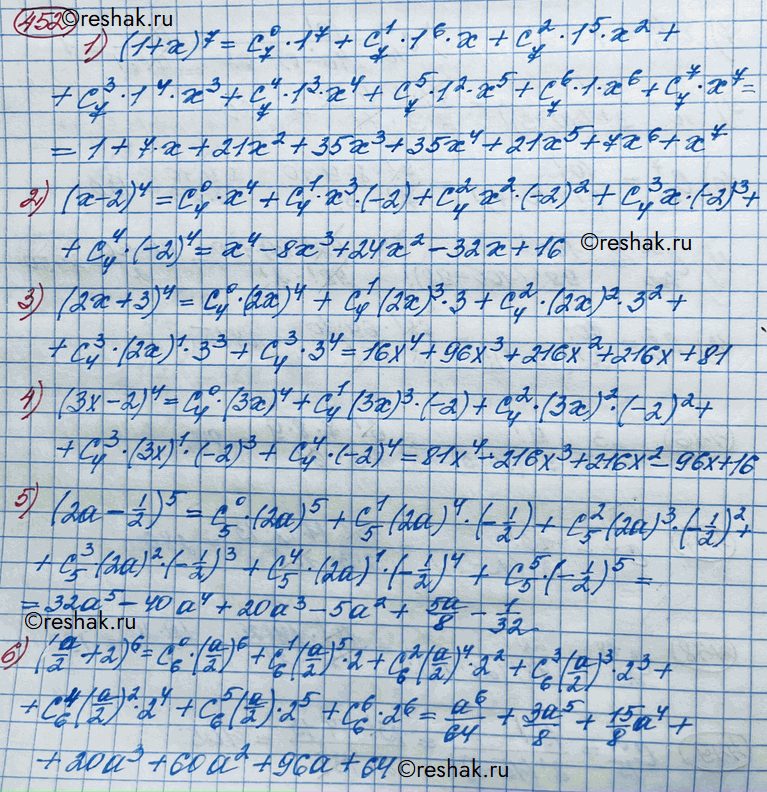 452 ©reshak.ru
1) (1+x)⁷ = C₇⁰·1⁷ + C₇¹·1⁶·x + C₇²·1⁵·x² +
+ C₇³·1⁴·x³ + C₇⁴·1³·x⁴ + C₇⁵·1²·x⁵ + C₇⁶·1·x⁶ + C₇⁷·x⁷ =
= 1 + 7·x + 21x² + 35x³ + 35x⁴ + 21x⁵ + 7x⁶ + x⁷
2) (x-2)⁴ = C₄⁰·x⁴ + C₄¹·x³·(-2) + C₄²x²·(-2)² + C₄³x·(-2)³ +
+ C₄⁴·(-2)⁴ = x⁴ - 8x³ + 24x² - 32x + 16 ©reshak.ru
3) (2x+3)⁴ = C₄⁰·(2x)⁴ + C₄¹(2x)³·3 + C₄²·(2x)²·3² +
+ C₄³·(2x)¹·3³ + C₄³·3⁴ = 16x⁴ + 96x³ + 216x² + 216x + 81
4) (3x-2)⁴ = C₄⁰·(3x)⁴ + C₄¹(3x)³·(-2) + C₄²·(3x)²·(-2)² +
+ C₄³·(3x)¹·(-2)³ + C₄⁴·(-2)⁴ = 81x⁴ - 216x³ + 216x² - 96x + 16
5) (2a - 1/2)⁵ = C₅⁰·(2a)⁵ + C₅¹(2a)⁴·(-1/2) + C₅²(2a)³·(-1/2)² +
+ C₅³(2a)²·(-1/2)³ + C₅⁴·(2a)¹·(-1/2)⁴ + C₅⁵·(-1/2)⁵ =
= 32a⁵ - 40a⁴ + 20a³ - 5a² + 5a/8 - 1/32
©reshak.ru
6) (a/2 + 2)⁶ = C₆⁰·(a/2)⁶ + C₆¹(a/2)⁵·2 + C₆²(a/2)⁴·2² + C₆³(a/2)³·2³ +
+ C₆⁴(a/2)²·2⁴ + C₆⁵(a/2)·2⁵ + C₆⁶·2⁶ = a⁶/64 + 3a⁵/8 + 15/8a⁴ +
+ 20a³ + 60a² + 96a + 64 ©reshak.ru